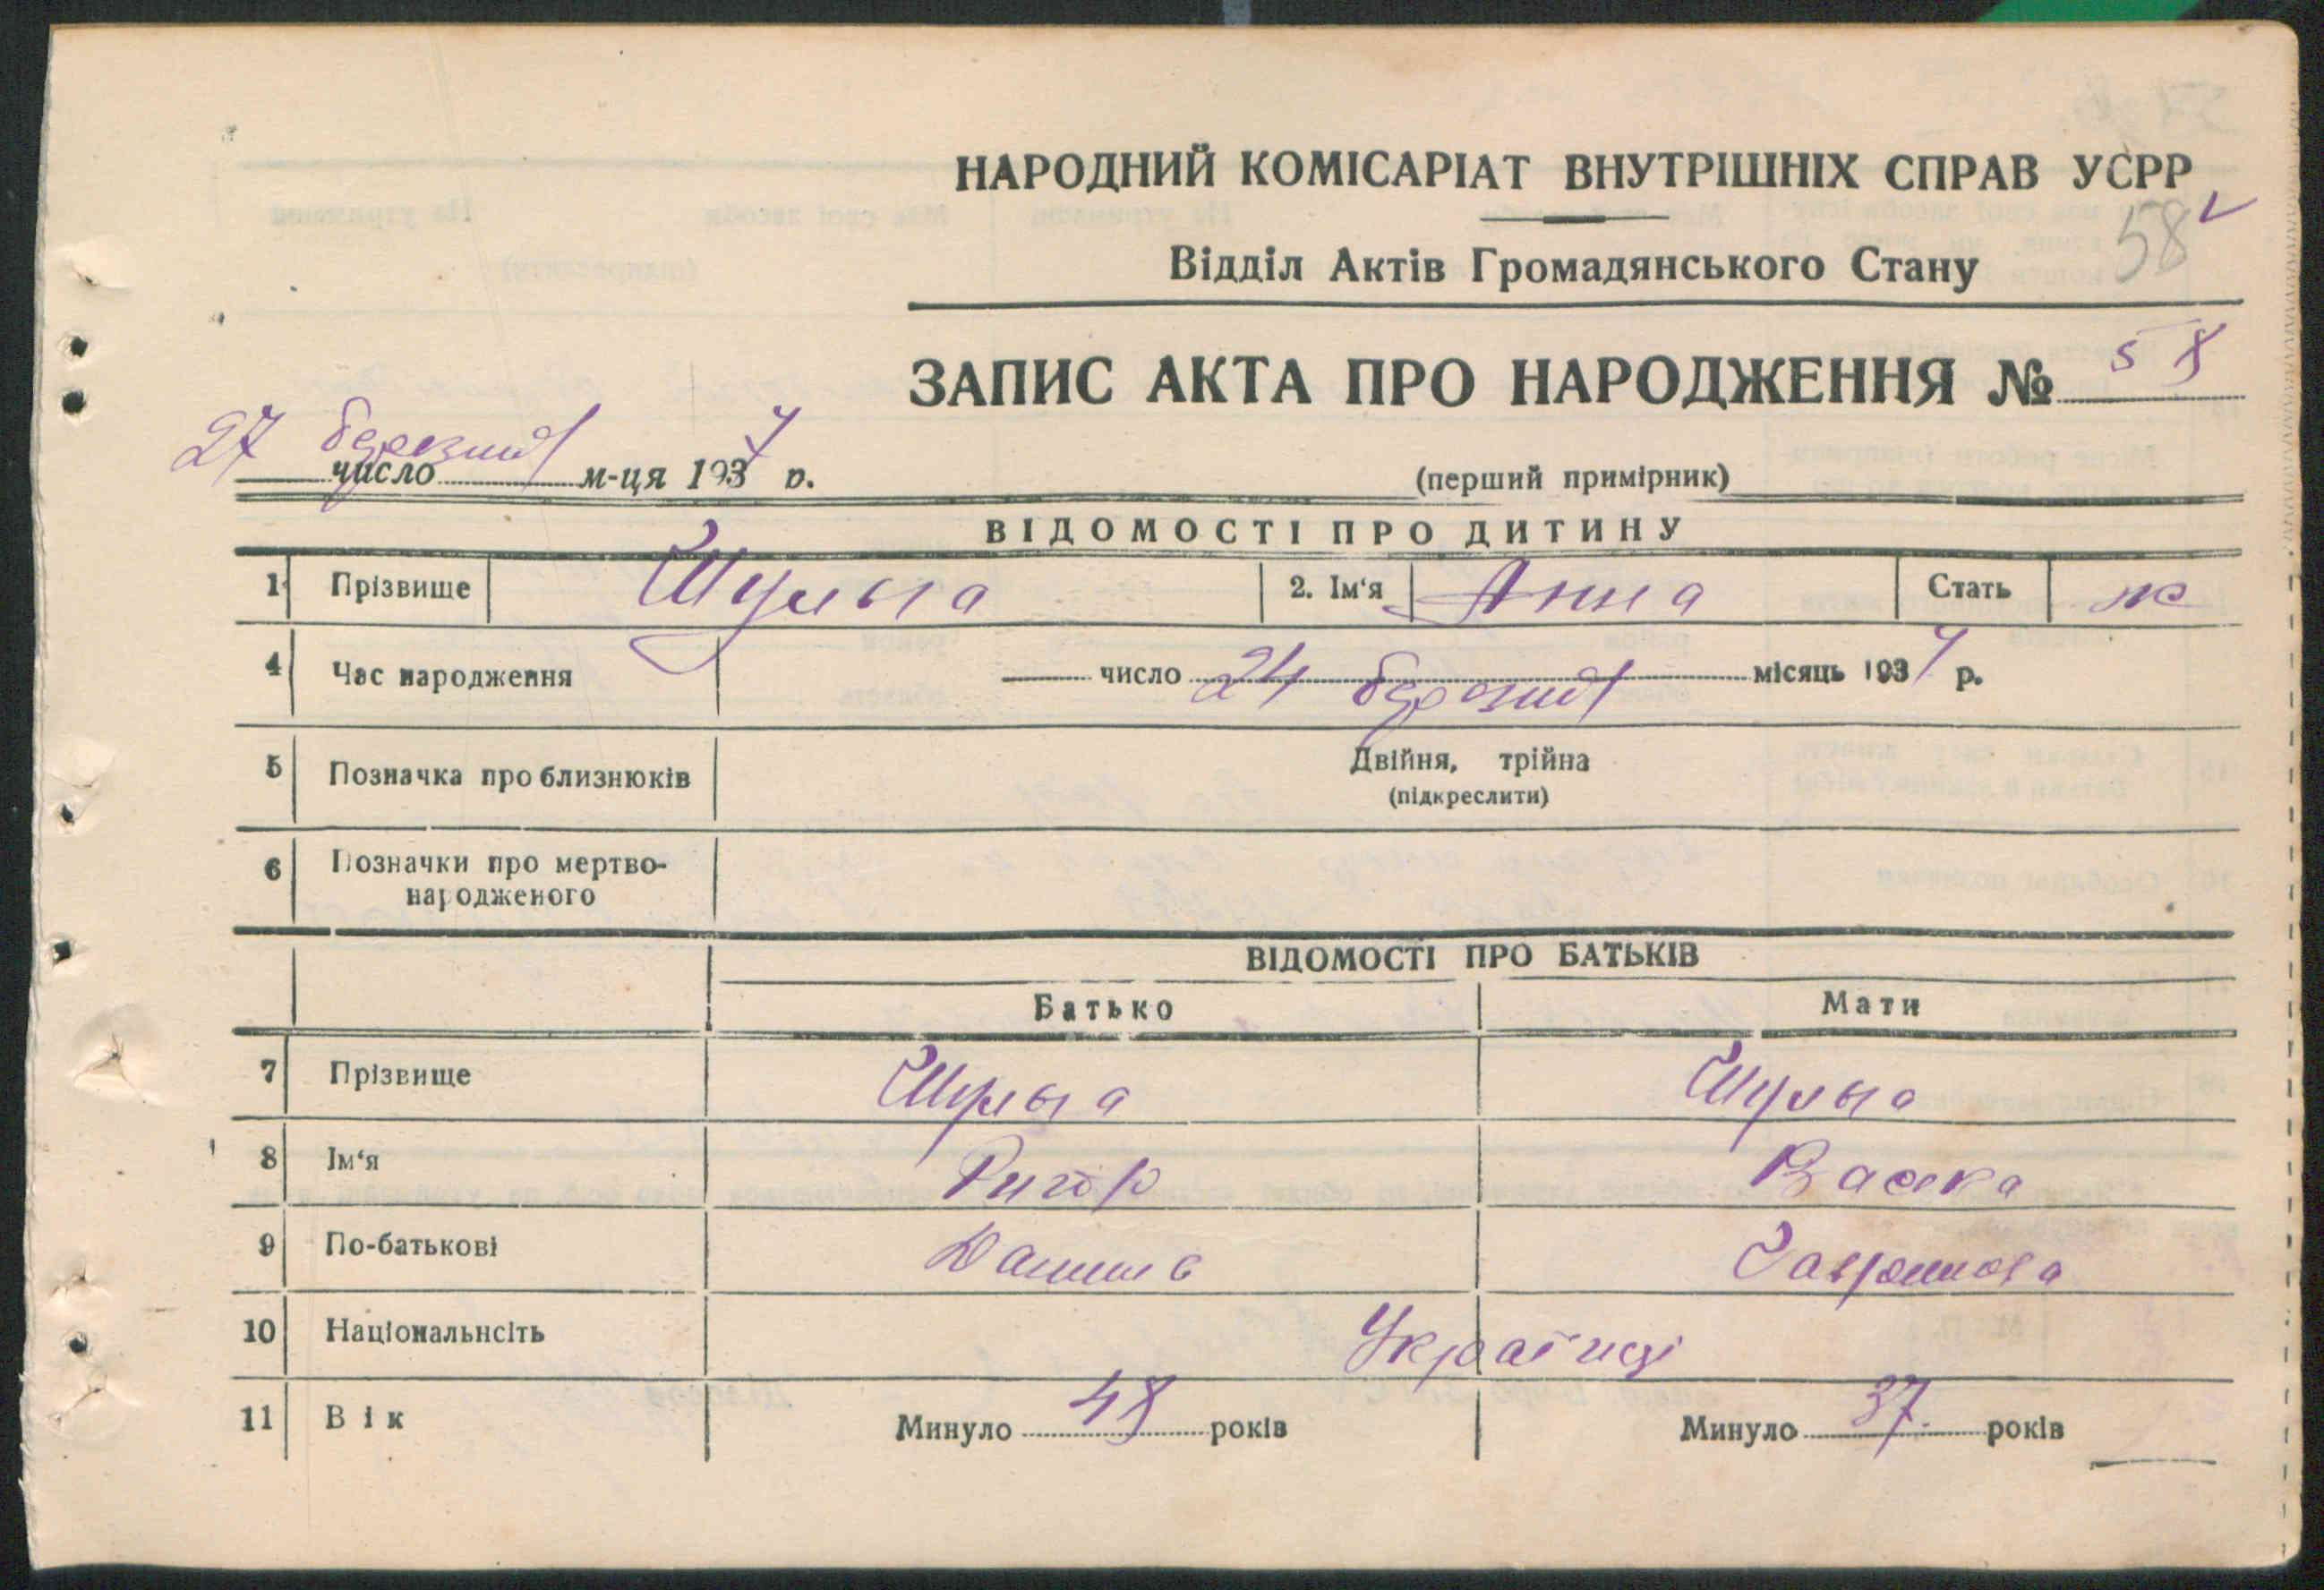 НАРОДНИЙ КОМІСАРІАТ ВНУТРІШНІХ СПРАВ УСРР
58
Відділ Актів Громадянського Стану
ЗАПИС АКТА ПРО НАРОДЖЕННЯ № 58
27 березня
число м-ця 1937 р.
(перший примірник)
ВІДОМОСТІ ПРО ДИТИНУ
1 Прізвище 2. Ім'я Анна Стать ж
4 Час народження число 24 березня місяць 1937 р.
5 Позначка про близнюків Двійня, трійна
(підкреслити)
6 Позначки про мертво-
народженого
ВІДОМОСТІ ПРО БАТЬКІВ
Батько Мати
7 Прізвище
8 Ім'я Ригор
9 По-батькові
10 Національнсіть Українці
11 Вік Минуло 48 років Минуло 37. років